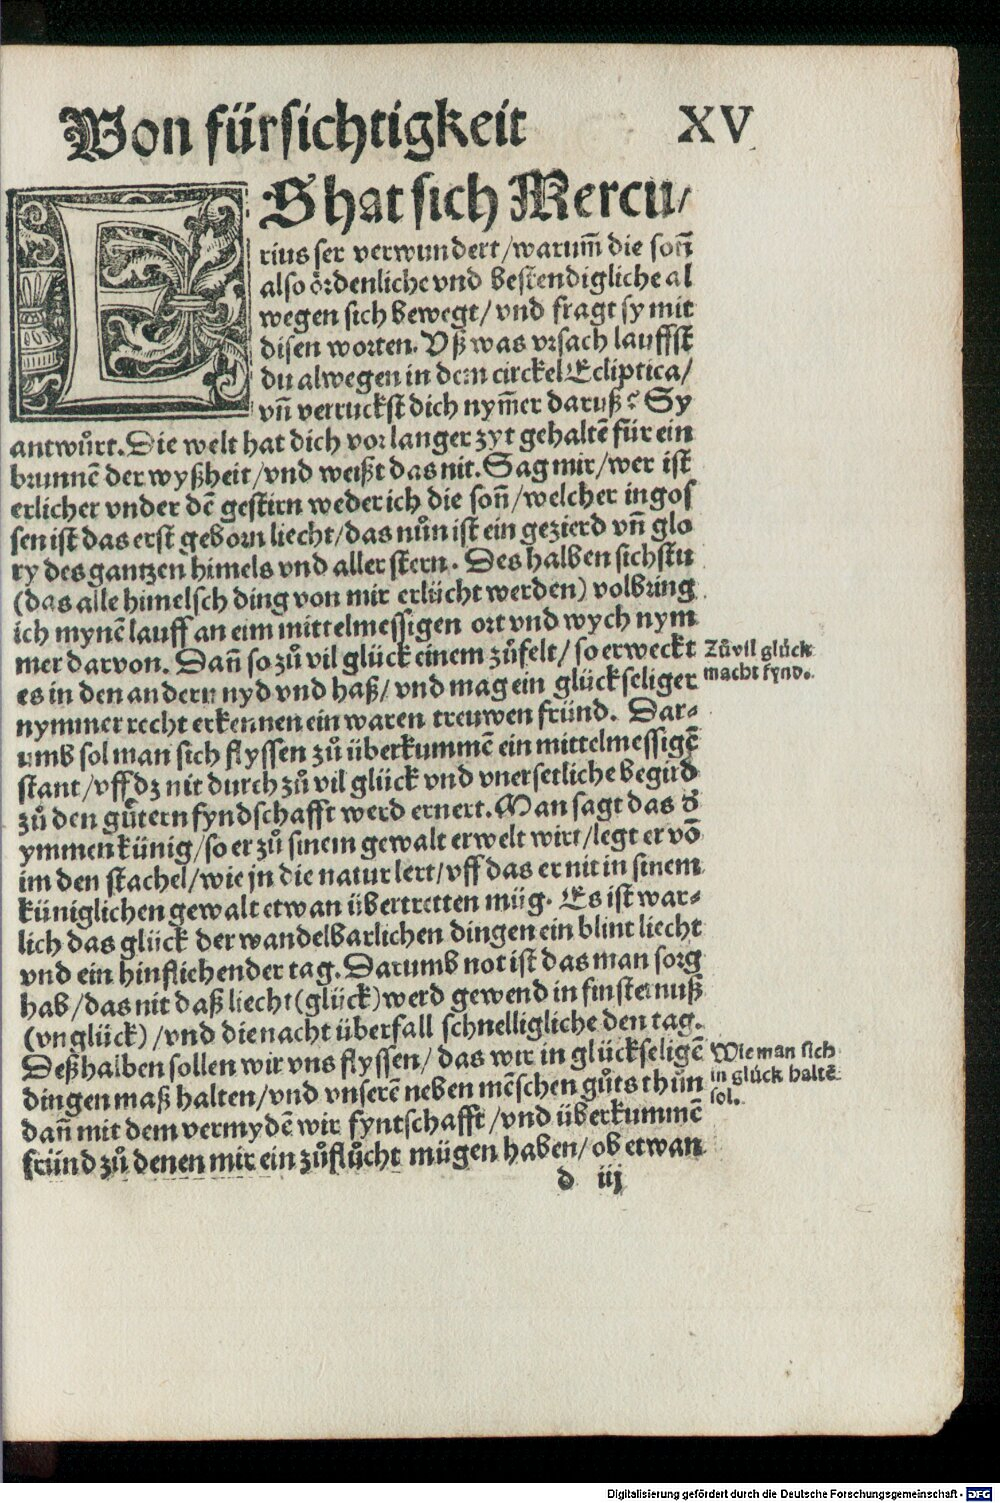 Von fürsichtigkeit XV
ES hat sich Mercu/
rius ser verwundert/warum̄ die son̄
also ördenliche vnd bestendigliche al
wegen sich bewegt/vnd fragt sy mit
disen worten. Vß was vrsach lauffst
du alwegen in dem circkel Ecliptica/
vn̄ verruckst dich nym̄er daruß? Sy
antwůrt. Die welt hat dich vor langer zyt gehaltē für ein
brunnē der wyßheit/vnd weißt das nit. Sag mir/wer ist
erlicher vnder dē gestirn weder ich die son̄/welcher ingos
sen ist das erst geborn liecht/das nůn ist ein gezierd vn̄ glo
ry des gantzen himels vnd aller stern. Des halben sichstu
(das alle himelsch ding von mir erlücht werden) volbring
ich mynē lauff an eim mittelmessigen ort vnd wych nym
mer darvon. Dan̄ so zů vil glück einem zůfelt/so erweckt
es in den andern nyd vnd haß/vnd mag ein glückseliger
nymmer recht erkennen ein waren treuwen fründ. Dar⸗
umb sol man sich flyssen zů überkummē ein mittelmessigē
stant/vff dz nit durch zů vil glück vnd vnersetliche begird
zů den gůtern fyndschafft werd ernert. Man sagt das d̕
ymmen künig/so er zů sinem gewalt erwelt wirt/legt er vō
im den stachel/wie jn die natur lert/vff das er nit in sinem
küniglichen gewalt etwan übertretten müg. Es ist war⸗
lich das glück der wandelbarlichen dingen ein blint liecht
vnd ein hinflichender tag. Darumb not ist das man sorg
hab/das nit daß liecht (glück) werd gewend in finsternuß
(vnglück)/vnd die nacht überfall schnelligliche den tag.
Deßhalben sollen wir vns flyssen/das wir in glückseligē
dingen maß halten/vnd vnserē neben mēschen gůts thůn
dan̄ mit dem vermydē wir fyntschafft/vnd überkummē
fründ zů denen mir ein zůflůcht mügen haben/ob etwan
d iij
Zůvil glück
macht fynd.
Wie man sich
in glück haltē
sol.
Digitalisierung gefördert durch die Deutsche Forschungsgemeinschaft - DFG